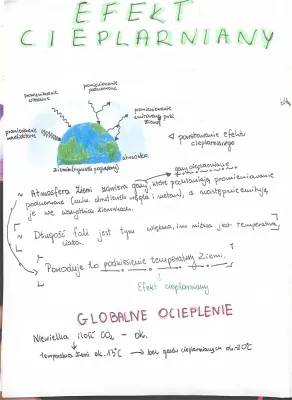 EFEKT
CIEPLARNIANY
promieniowanie
promieniowanie
podczerwone
promieniowanie
promieniowanie
Ziemi
atmosfera
Ziemia
powstawanie efektu
cieplarnianego
gazy cieplarniane
~ Atmosfera Ziemi zawiera gazy, które pochłaniają promieniowanie
podczerwone (m.in. dwutlenek węgla i metan), a następnie emitują
je we wszystkich kierunkach.
~ Długość fali jest tym większa, im niższa jest temperatura
ciała.
Powoduje to podniesienie temperatury Ziemi.
Efekt cieplarniany
GLOBALNE OCIEPLENIE
Niewielka ilość CO₂ - ok.
temperatura Ziemi ok. 15°C → bez gazów cieplarnianych ok.